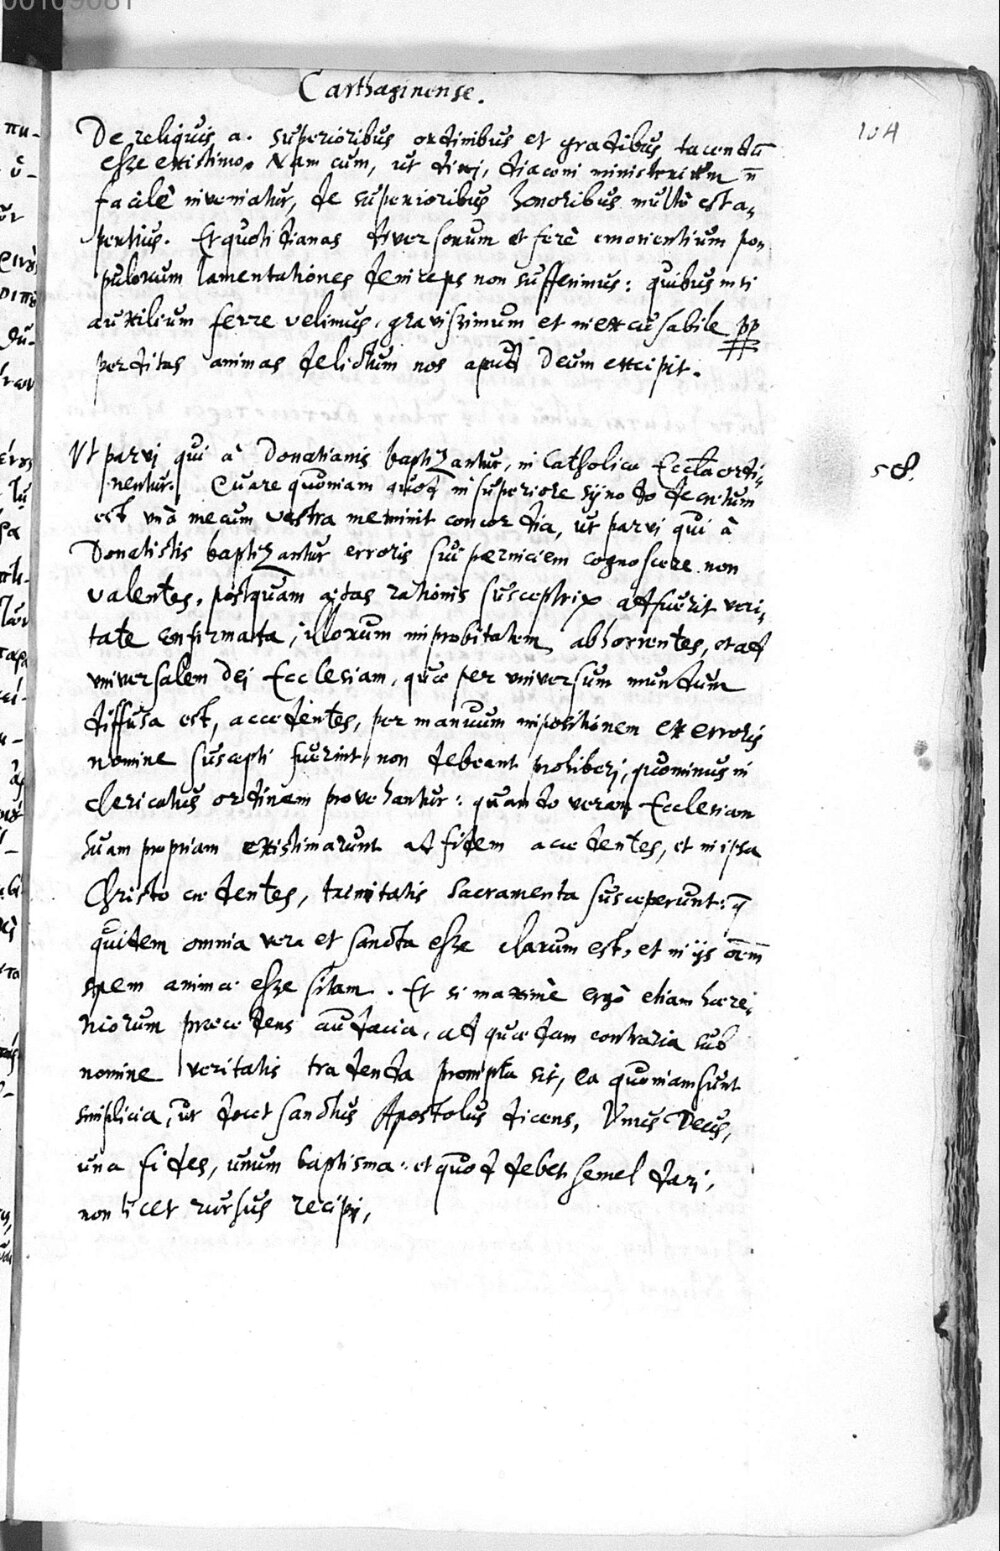 Carthaginense.
104
De reliquis a. superioribus ordinibus et gradibus tacendū
esse existimo. Nam cum, ut dixi, diaconi ministerium n̄
facilè inveniatur, de superioribus honoribus multò est a,
pertius. Et quotidianas diversorum et ferè emorientium po,
pulorum lamentationes deinceps non sufferimus: quibus nisi
auxilium ferre velimus, gravissimum et inexcusabile pp
perditas animas delictum nos apud Deum excipit.
Ut parvi qui à Donatianis baptizantur, in Catholica Eccl̄a ordi,
nentur. Quare quoniam quod in superiore synodo decretum
58.
est unà mecum vestra meminit concordia, ut parvi qui à
Donatistis baptizantur erroris sui perniciem cognoscere non
valentes, postquam aetas rationis susceptrix adfuerit veri,
tate confirmata, illorum improbitatem abhorrentes, et ad
universalem Dei Ecclesiam, quae per universum mundum
diffusa est, accedentes, per manuum impositionem ex erroris
nomine suscepti fuerint, non debeant prohiberi, quominus in
clericatus ordinem provehantur: quando veram Ecclesiam
suam propriam existimarunt ad fidem accedentes, et in ipsa
Christo credentes, trinitatis sacramenta susceperunt: q̄
quidem omnia vera et sancta esse clarum est, et in ijs om̄em
spem animae esse sitam. Et si maximè ergò etiam haere,
ticorum praecedens audacia, ad quaedam contraria sub
nomine veritatis tradenda prompta sit, ea quoniam sunt
simplicia, ut docet sanctus Apostolus dicens, Unus Deus,
una fides, unum baptisma: et quod debet semel dari,
non licet rursus recipi,